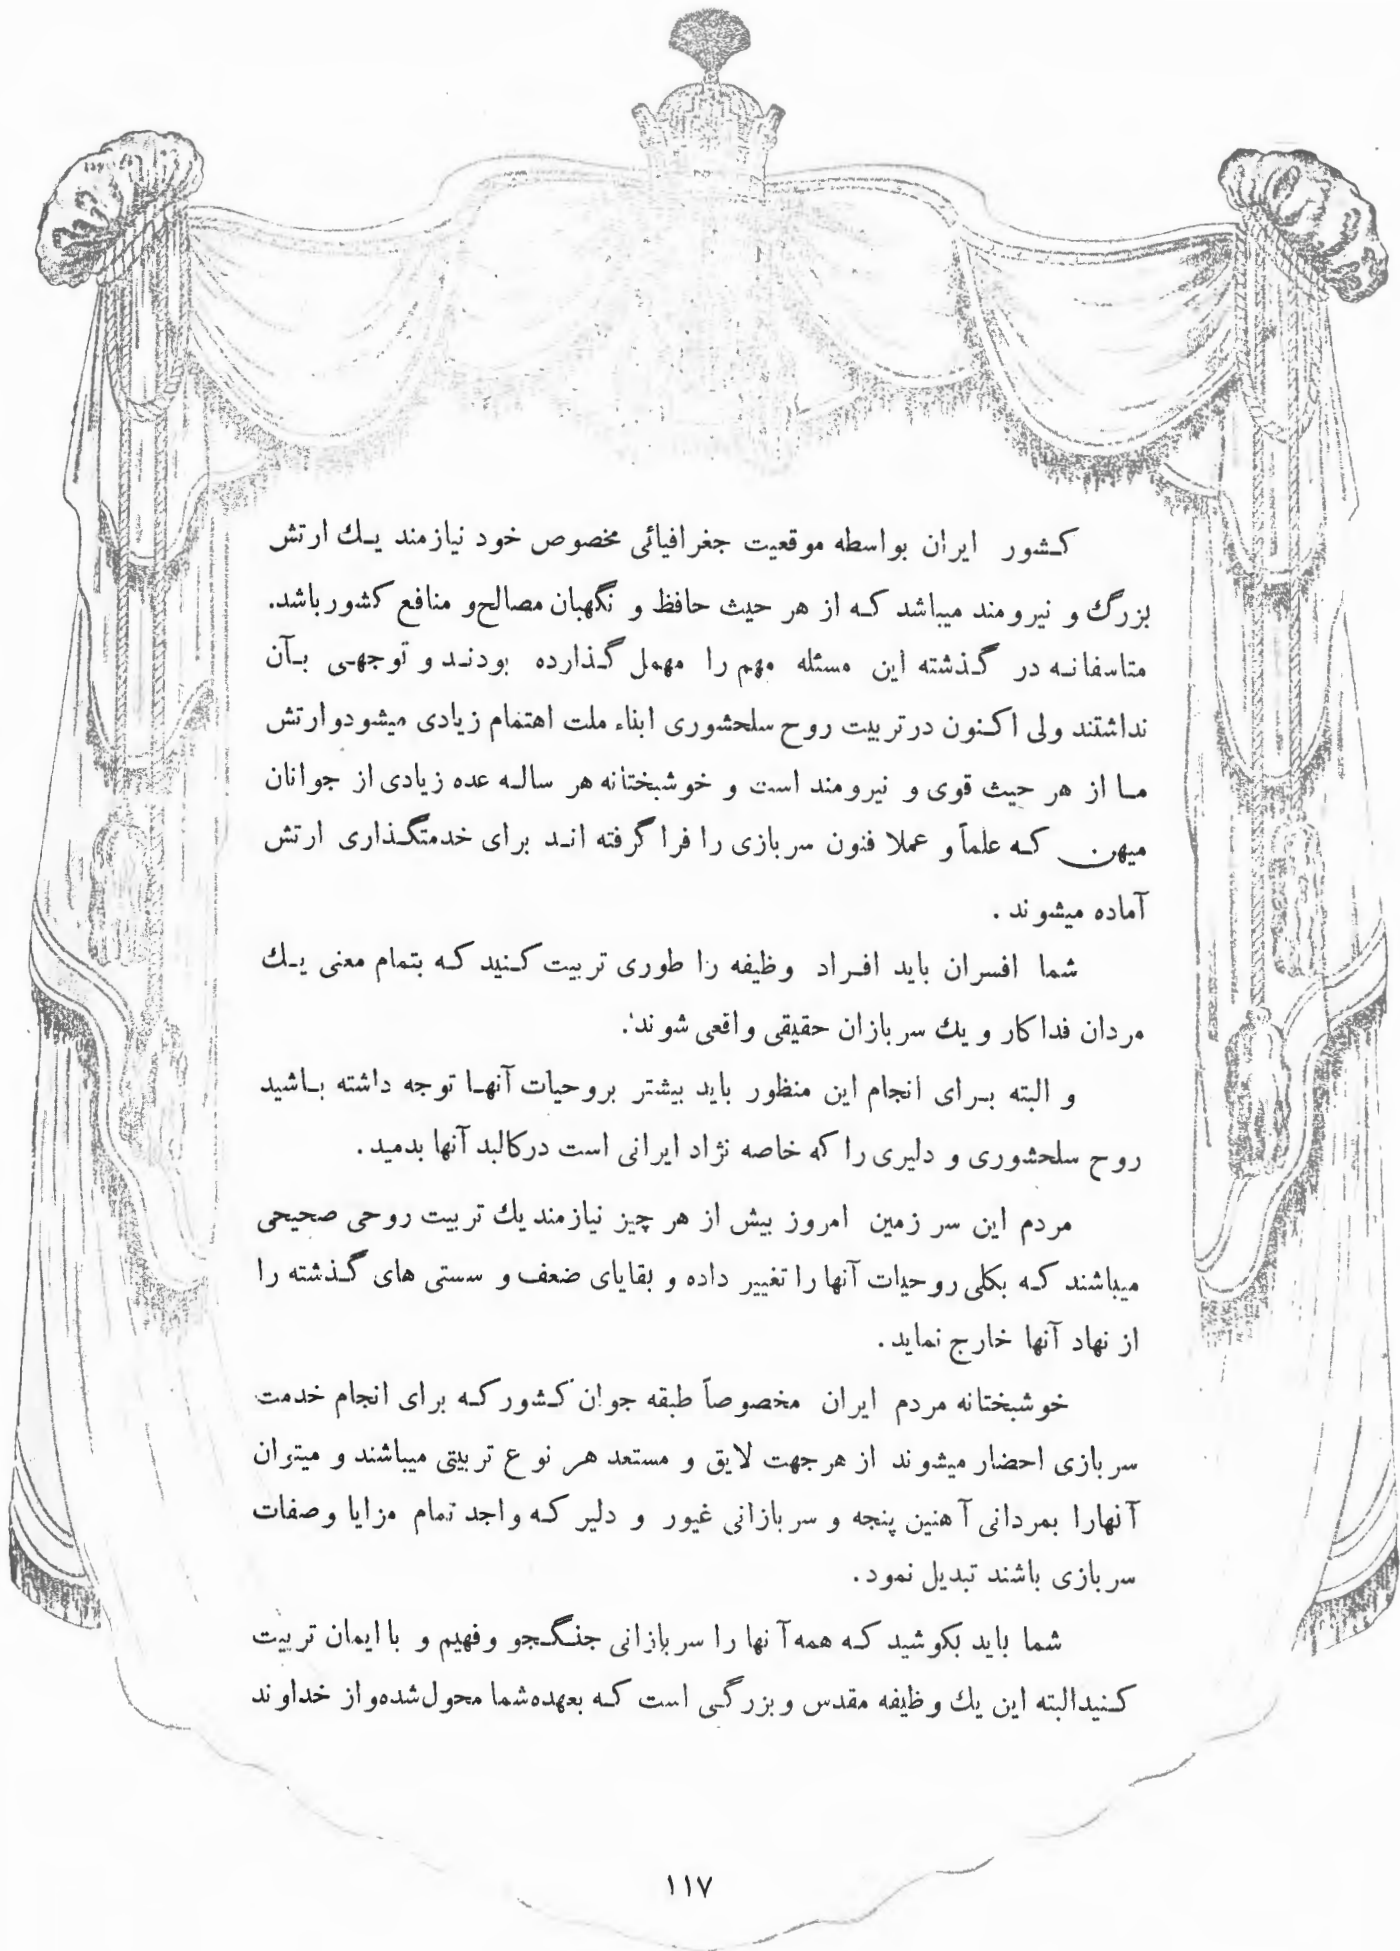 کشور ایران بواسطه موقعیت جغرافیائی مخصوص خود نیازمند یك ارتش
بزرگ و نیرومند میباشد که از هر حیث حافظ و نگهبان مصالح و منافع کشور باشد.
متاسفانه در گذشته این مسئله مهم را مهمل گذارده بودند و توجهی بآن
نداشتند ولی اکنون در تربیت روح سلحشوری ابناء ملت اهتمام زیادی میشود و ارتش
ما از هر حیث قوی و نیرومند است و خوشبختانه هر ساله عده زیادی از جوانان
میهن که علماً و عملا فنون سربازی را فرا گرفته اند برای خدمتگذاری ارتش
آماده میشوند .
شما افسران باید افراد وظیفه را طوری تربیت کنید که بتمام معنی یك
مردان فداکار و یك سربازان حقیقی واقعی شوند.
و البته برای انجام این منظور باید بیشتر بروحیات آنها توجه داشته باشید
روح سلحشوری و دلیری را که خاصه نژاد ایرانی است در کالبد آنها بدمید .
مردم این سر زمین امروز بیش از هر چیز نیازمند یك تربیت روحی صحیحی
میباشند که بکلی روحیات آنها را تغییر داده و بقایای ضعف و سستی های گذشته را
از نهاد آنها خارج نماید .
خوشبختانه مردم ایران مخصوصاً طبقه جوان کشور که برای انجام خدمت
سربازی احضار میشوند از هر جهت لایق و مستعد هر نوع تربیتی میباشند و میتوان
آنهارا بمردانی آهنین پنجه و سربازانی غیور و دلیر که واجد تمام مزایا و صفات
سربازی باشند تبدیل نمود .
شما باید بکوشید که همه آنها را سربازانی جنگجو و فهیم و با ایمان تربیت
کنید البته این یك وظیفه مقدس و بزرگی است که بعهده شما محول شده و از خداوند
۱۱۷